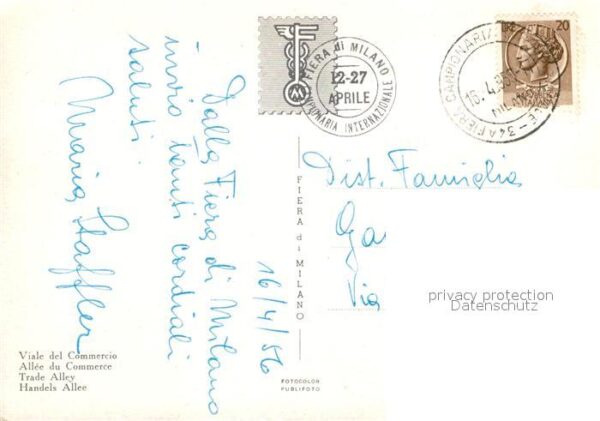 Dalla Fiera di Milano
invio tanti cordiali
saluti
Maria Staffler
16/4/56
Viale del Commercio
Allée du Commerce
Trade Alley
Handels Allee
FIERA di MILANO
FOTOCOLOR
PUBLIFOTO
FIERA di MILANO
12-27
APRILE
CAMPIONARIA INTERNAZIONALE
20
MILANO
Dist. Famiglia
Ga
Via
privacy protection
Datenschutz